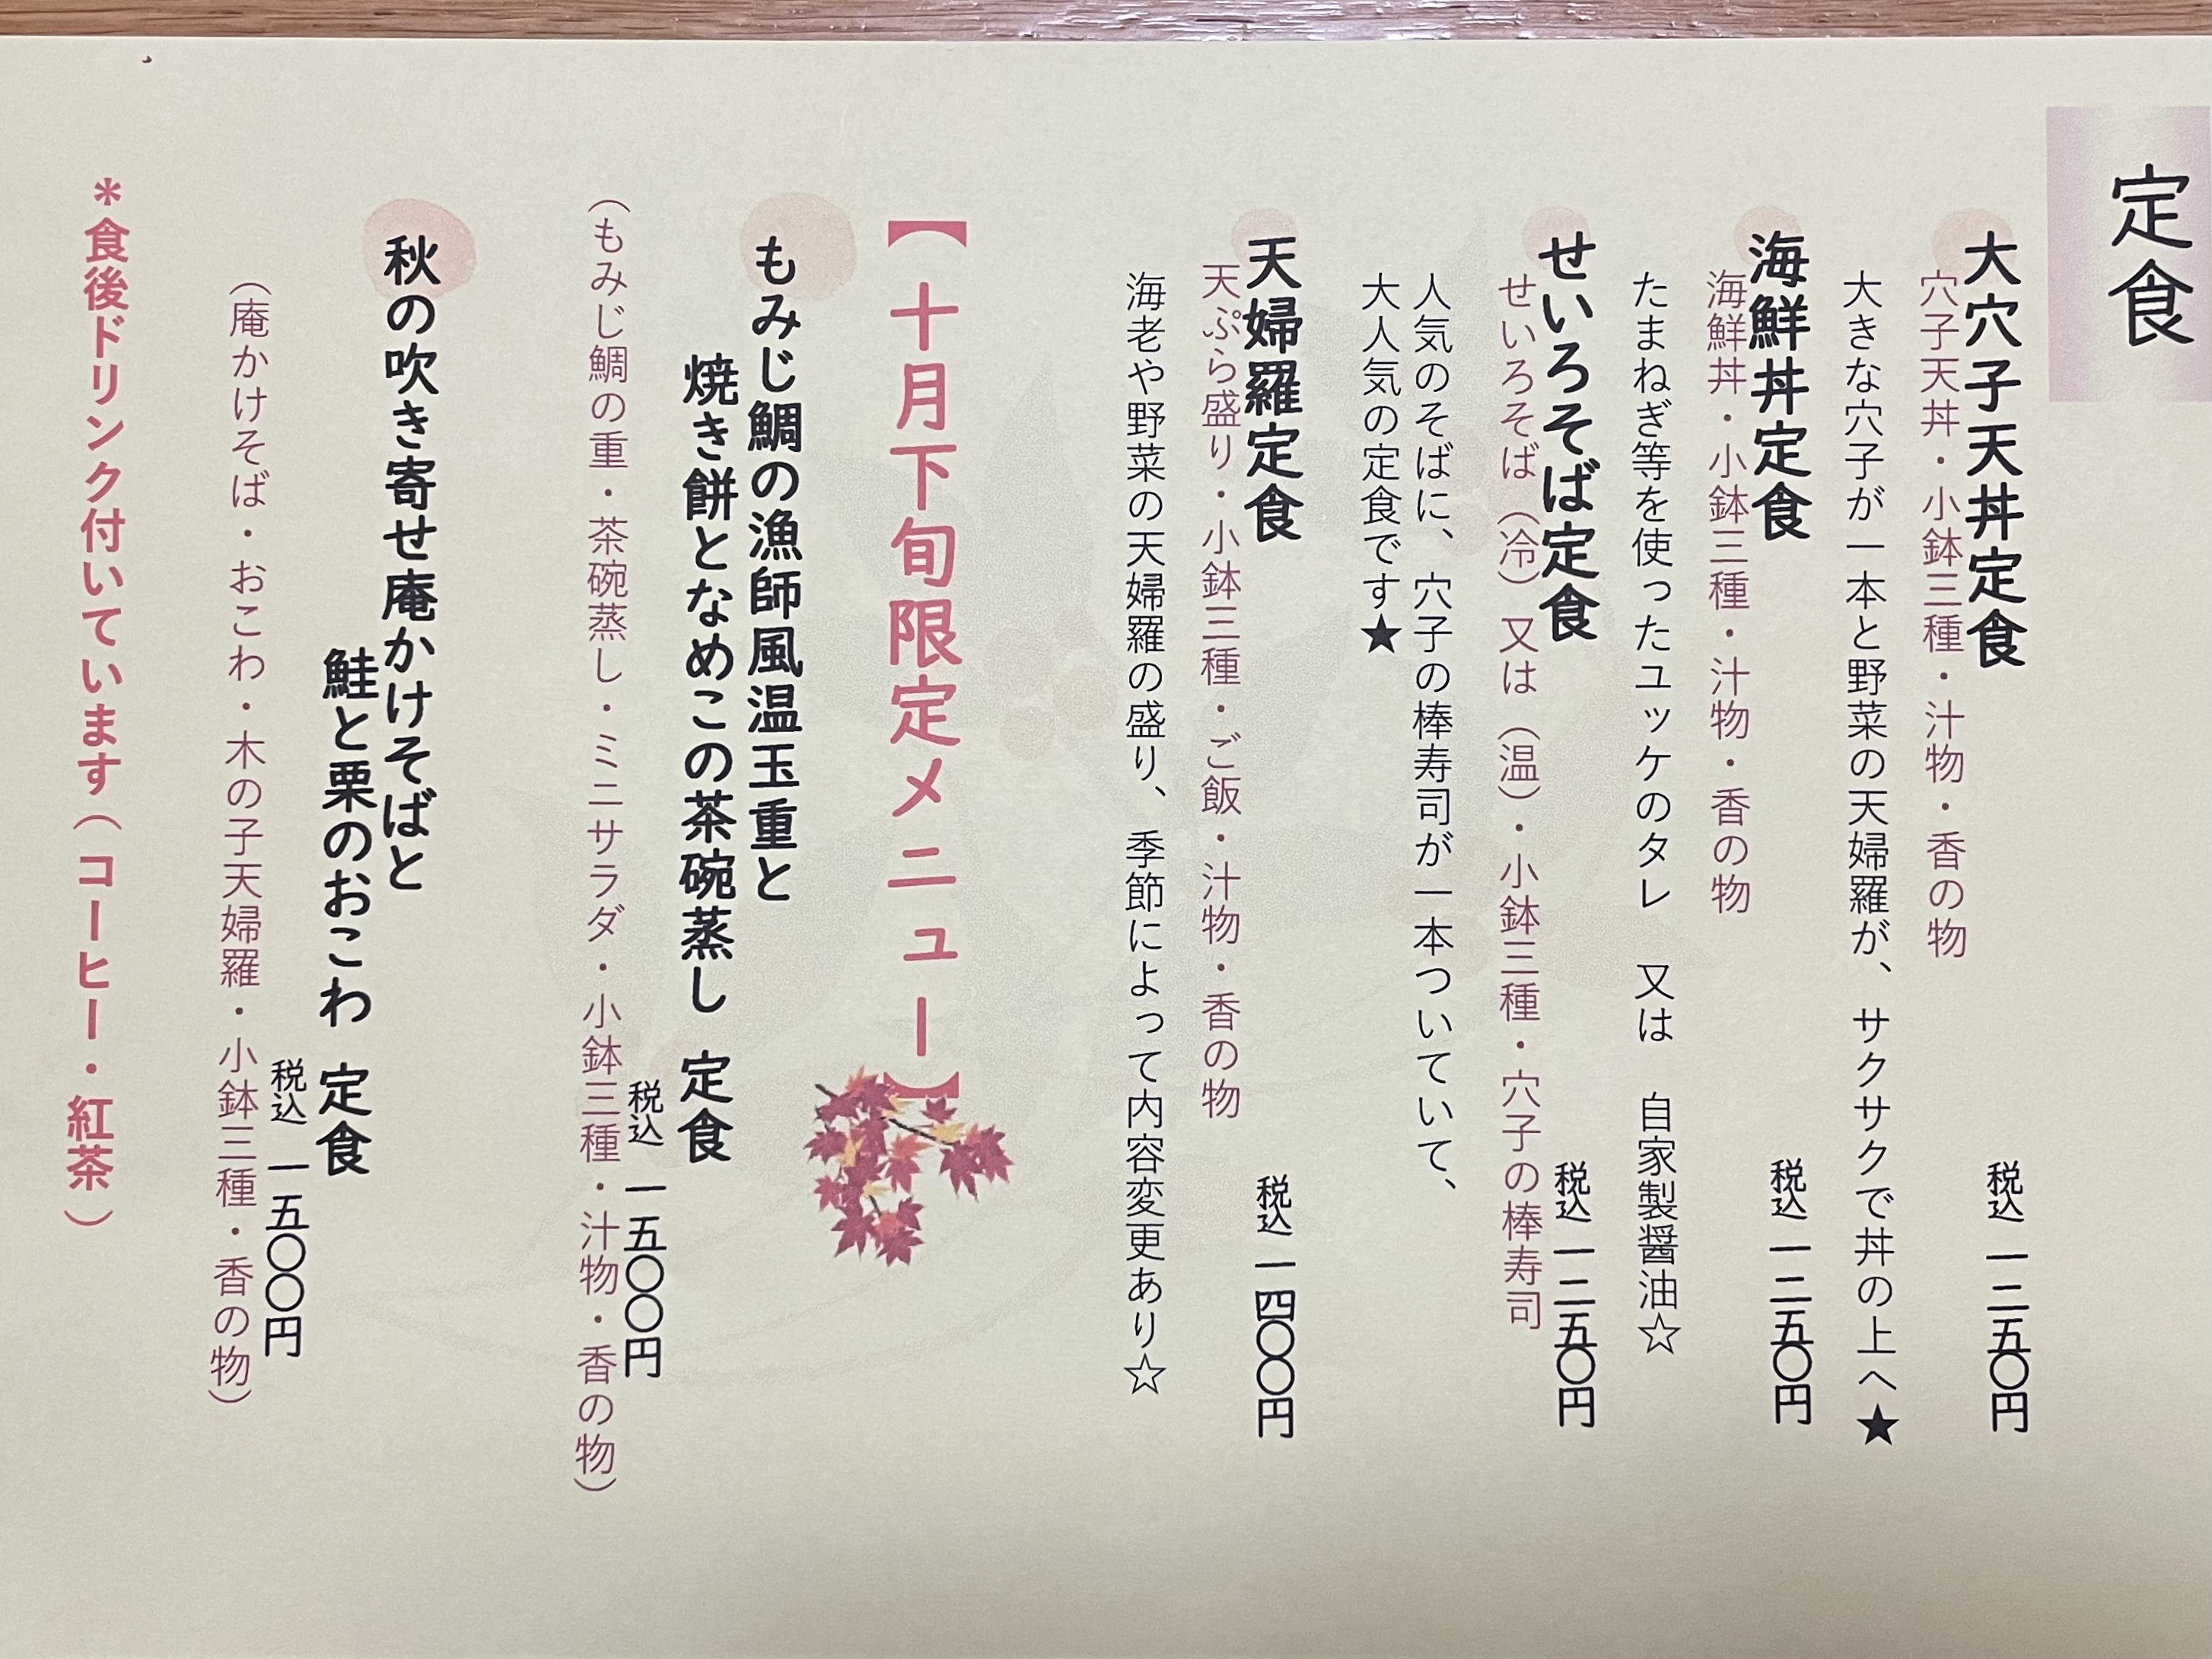 定食
大穴子天丼定食
税込 一二五〇円
穴子天丼・小鉢三種・汁物・香の物
大きな穴子が一本と野菜の天婦羅が、サクサクで丼の上へ★
海鮮丼定食
税込 一二五〇円
海鮮丼・小鉢三種・汁物・香の物
たまねぎ等を使ったユッケのタレ 又は 自家製醤油☆
せいろそば定食
税込 一二五〇円
せいろそば（冷）又は（温）・小鉢三種・穴子の棒寿司
人気のそばに、穴子の棒寿司が一本ついていて、
大人気の定食です★
天婦羅定食
税込 一四〇〇円
天ぷら盛り・小鉢三種・ご飯・汁物・香の物
海老や野菜の天婦羅の盛り、季節によって内容変更あり☆
【十月下旬限定メニュー】
もみじ鯛の漁師風温玉重と
焼き餅となめこの茶碗蒸し 定食
税込 一五〇〇円
（もみじ鯛の重・茶碗蒸し・ミニサラダ・小鉢三種・汁物・香の物）
秋の吹き寄せ庵かけそばと
鮭と栗のおこわ 定食
税込 一五〇〇円
（庵かけそば・おこわ・木の子天婦羅・小鉢三種・香の物）
＊食後ドリンク付いています（コーヒー・紅茶）